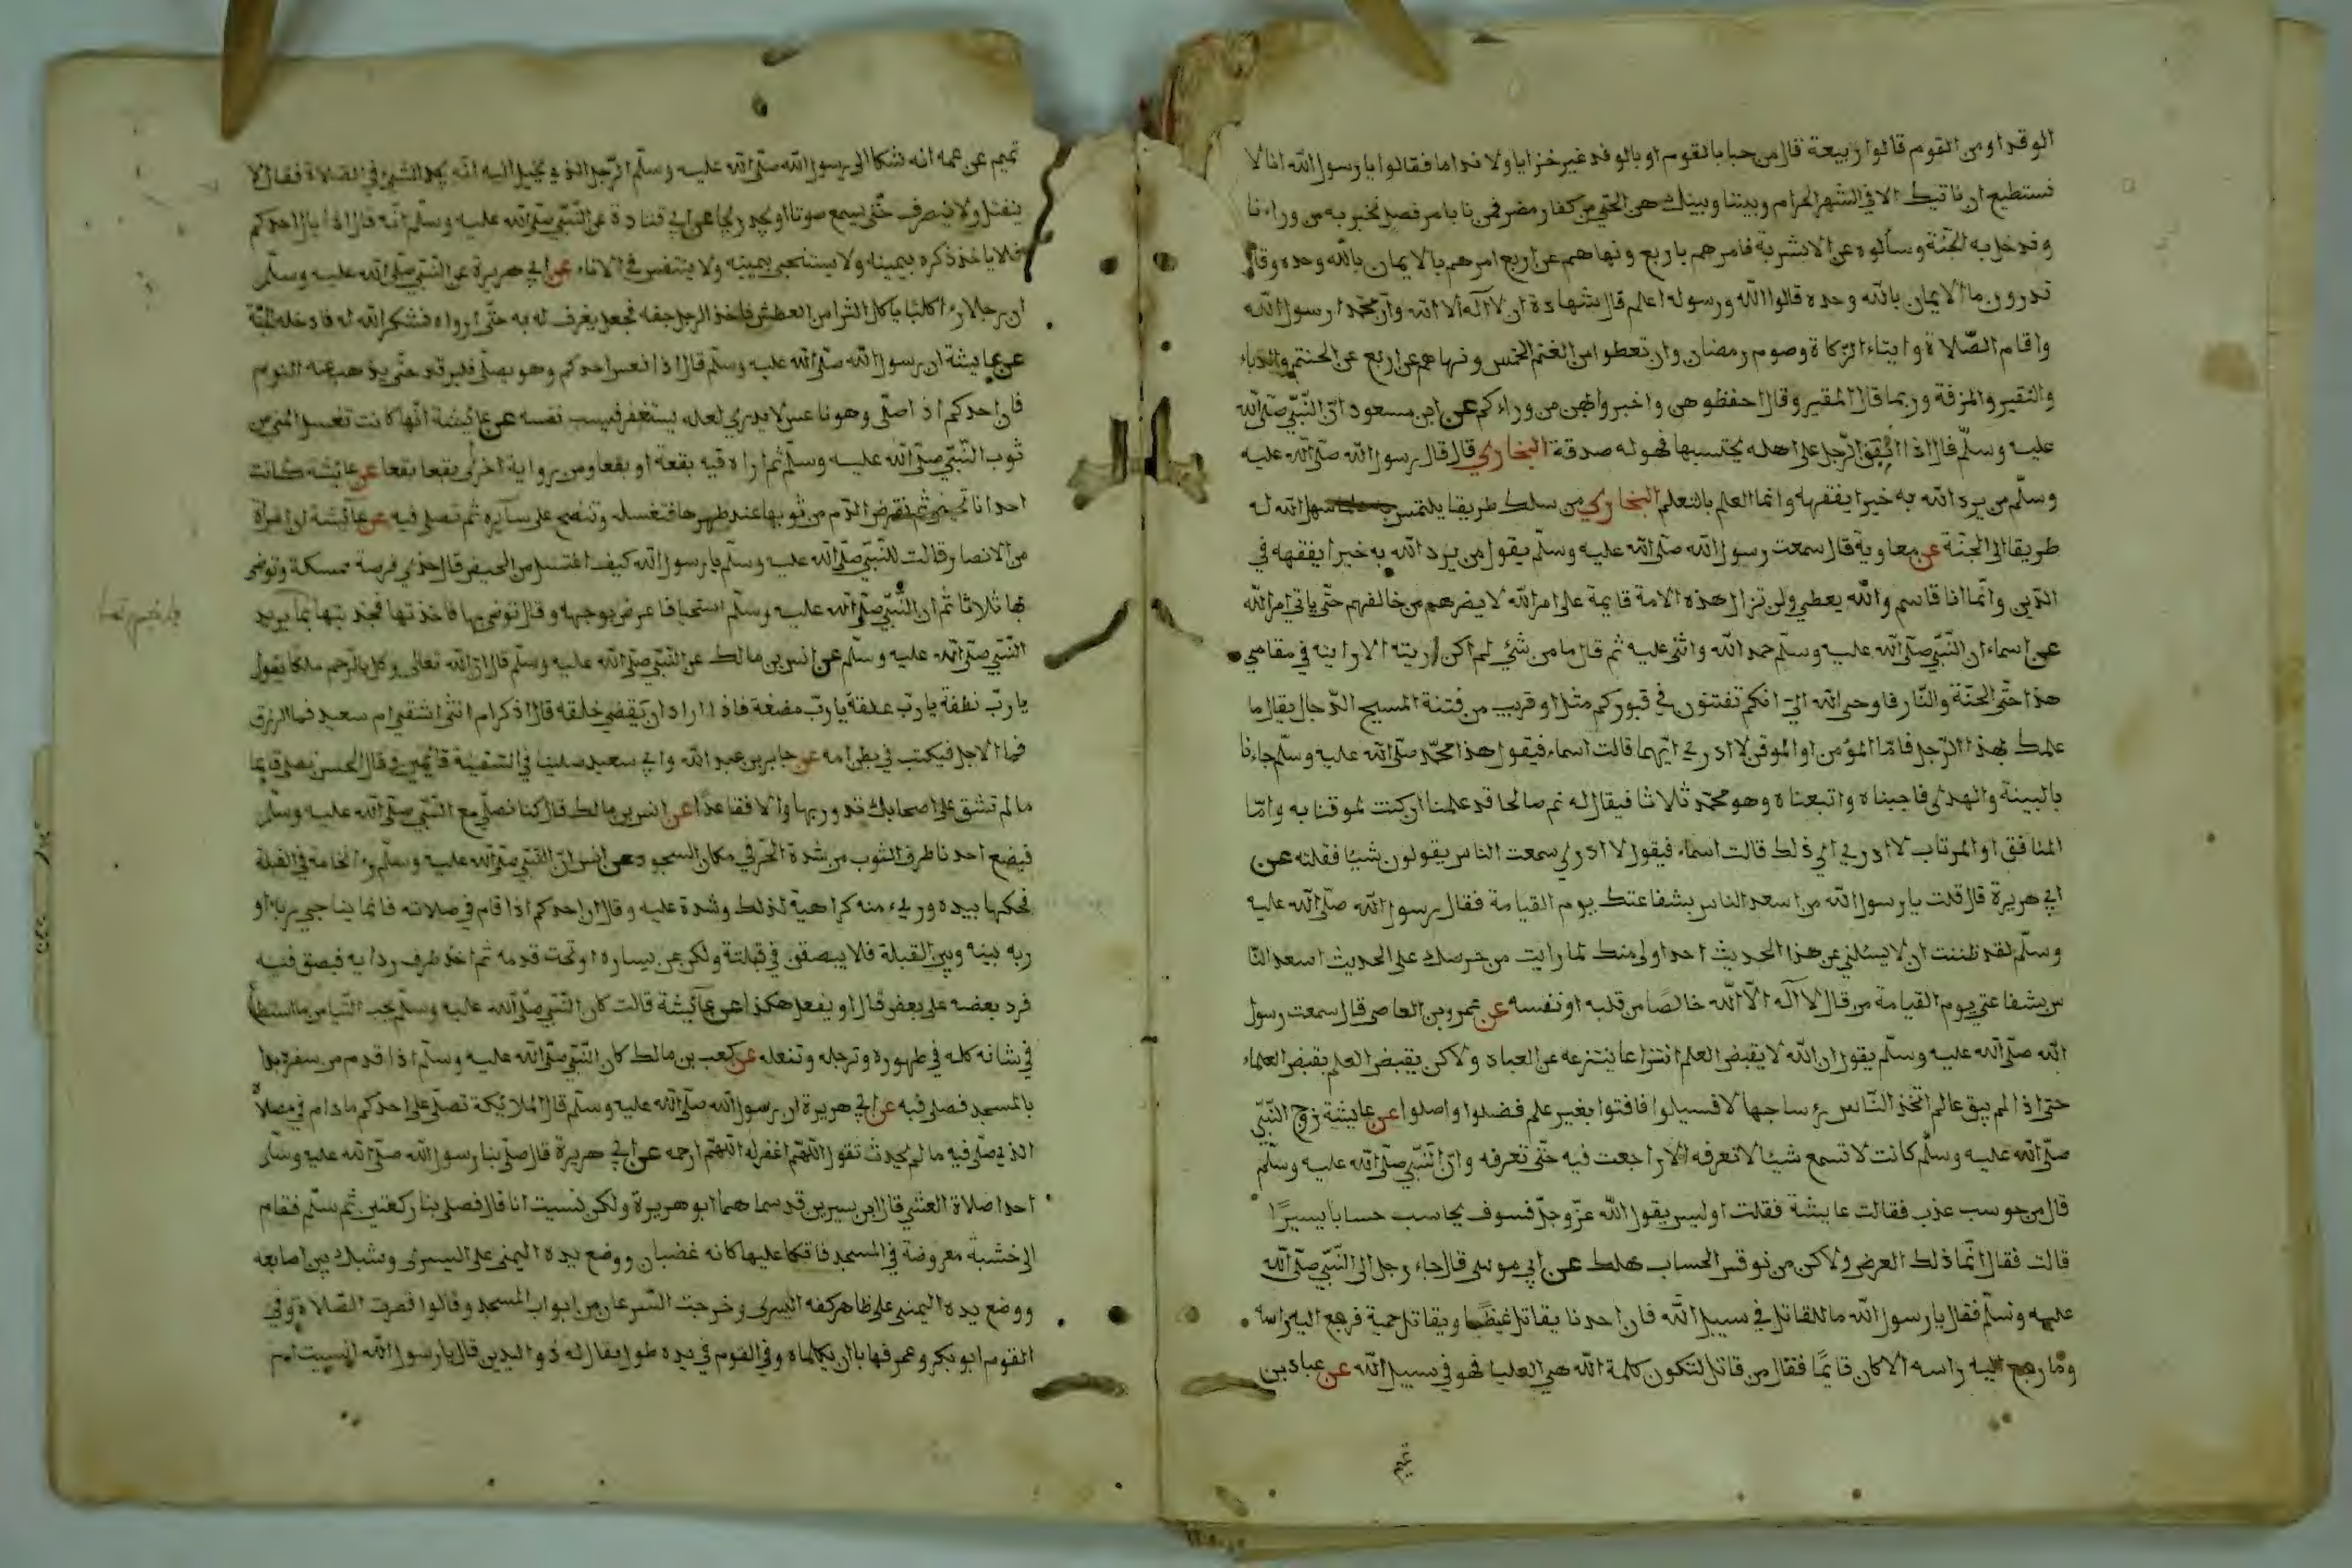 الوقد او من القوم قالوا ربيعة قال مرحبا بالقوم او بالوفد غير خزايا ولا نداما فقالوا يا رسول الله انا لا
نستطيع ان ناتيك الا في الشهر الحرام وبيننا وبينك هى الحتي من كفار مضر فمرنا بامر فصل نخبر به من وراءنا
وندخل به الجنة وسألوه عن الاشربة فامرهم باربع ونهاهم عن اربع امرهم بالايمان بالله وحده وقال
تدرون ما الايمان بالله وحده قالوا الله ورسوله اعلم قال شهادة ان لا اله الا الله وان محمدا رسول الله
واقام الصلاة وايتاء الزكاة وصوم رمضان وان تعطوا من الغنم الخمس ونهاهم عن اربع عن الحنتم والدباء
والنقير والمزفة وربما قال المقير وقال احفظوهن واخبروا بهن من وراءكم عن ابن مسعود ان النبي صلى الله
عليه وسلم قال اذا انفق الرجل على اهله يحتسبها فهو له صدقة البخاري قال قال رسول الله صلى الله عليه
وسلم من يرد الله به خيرا يفقهه وانما العلم بالتعلم البخاري من سلك طريقا يلتمس سهل الله له
طريقا الى الجنة عن معاوية قال سمعت رسول الله صلى الله عليه وسلم يقول من يرد الله به خيرا يفقهه في
الدين وانما انا قاسم والله يعطي ولن تزال هذه الامة قايمة على امر الله لا يضرهم من خالفهم حتى ياتي امر الله
عن اسماء ان النبي صلى الله عليه وسلم حمد الله واثنى عليه ثم قال ما من شئ لم اكن اريته الا رايته في مقامي
هذا حتى الجنة والنار فاوحى الله الي انكم تفتنون في قبوركم مثل او قريب من فتنة المسيح الدجال يقال ما
علمك بهذا الرجل فاما المؤمن او الموقن لا ادري ايهما قالت اسماء فيقول هذا محمد صلى الله عليه وسلم جاءنا
بالبينة والهدى فاجبناه واتبعناه وهو محمد ثلاثا فيقال له نم صالحا قد علمنا ان كنت لموقنا به واما
المنافق او المرتاب لا ادري اي ذلك قالت اسماء فيقول لا ادري سمعت الناس يقولون شيئا فقلته عن
ابي هريرة قال قلت يا رسول الله من اسعد الناس بشفاعتك يوم القيامة فقال رسول الله صلى الله عليه
وسلم لقد ظننت ان لا يسئلني عن هذا الحديث احد اولى منك لما رايت من حرصك على الحديث اسعد النا
س بشفاعتي يوم القيامة من قال لا اله الا الله خالصا من قلبه او نفسه عن عمرو بن العاصي قال سمعت رسول
الله صلى الله عليه وسلم يقول ان الله لا يقبض العلم انتزاعا ينتزعه عن العباد ولاكن يقبض العلم بقبض العلماء
حتى اذا لم يبق عالم اتخذ الناس فسيلوا فافتوا بغير علم فضلوا واضلوا عن عايشة زوج النبي
صلى الله عليه وسلم كانت لا تسمع شيئا لا تعرفه الا راجعت فيه حتى تعرفه وان النبي صلى الله عليه وسلم
قال من حوسب عذب فقالت عايشة فقلت اوليس يقول الله عز وجل فسوف يحاسب حسابا يسيرا
قالت فقال انما ذلك العرض ولاكن من نوقس الحساب هلك عن ابي موسى قال جاء رجل الى النبي صلى الله
عليه وسلم فقال يا رسول الله ما للقاتل في سبيل الله فان احدنا يقاتل غيظا ويقاتل حمية فرجع اليه راسه
وما رجع اليه راسه الا كان قايما فقال من قاتل لتكون كلمة الله هي العليا فهو في سبيل الله عن عباد بن
تميم
تميم عن عمه انه شكا الى رسول الله صلى الله عليه وسلم الرجل الذي يخيل اليه انه يجد الشئ في الصلاة فقال لا
ينفتل ولا ينصرف حتى يسمع صوتا او يجد ريحا عن ابي قتادة عن النبي صلى الله عليه وسلم انه قال اذا بال احدكم
فلا ياخذ ذكره بيمينه ولا يستنجى بيمينه ولا يتنفس في الاناء عن ابي هريرة عن النبي صلى الله عليه وسلم
ان رجلا رءا كلبا ياكل الثرا من العطش فاخذ الرجل خفه فجعل يغرف له به حتى ارواه فشكر الله له فادخله الجنة
عن عايشة ان رسول الله صلى الله عليه وسلم قال اذا نعس احدكم وهو يصلي فليرقد حتى يذهب عنه النوم
فان احدكم اذا صلى وهو ناعس لا يدري لعله يستغفر فيسب نفسه عن عايشة انها كانت تغسل المني من
ثوب النبي صلى الله عليه وسلم ثم اراه فيه بقعة او بقعا ومن رواية اخرى بقعا بقعا عن عايشة كانت
احدانا تحيض ثم تقرض الدم من ثوبها عند طهرها فتغسله وتنضح على سآيره ثم تصلي فيه عن عآيشة ان امرأة
من الانصار قالت للنبي صلى الله عليه وسلم يا رسول الله كيف اغتسل من الحيض قال خذي فرصة ممسكة وتوضئ
بها ثلاثا ثم ان النبي صلى الله عليه وسلم استحيا فاعرض بوجهه وقال توضي بها فاخذتها فجذبتها بما يريد
النبي صلى الله عليه وسلم عن انس بن مالك عن النبي صلى الله عليه وسلم قال ان الله تعالى وكل بالرحم ملكا يقول
يا رب نطفة يا رب علقة يا رب مضغة فاذا اراد ان يقضي خلقه قال اذكر ام انثى اشقي ام سعيد فما الرزق
فما الاجل فيكتب في بطن امه عن جابر بن عبد الله وابي سعيد صليا في السفينة قائمين وقال الحسن تصلي قايما
ما لم تشق على اصحابك تدور بها والا فقاعدا عن انس بن مالك قال كنا نصلي مع النبي صلى الله عليه وسلم
فيضع احدنا طرف الثوب من شدة الحر في مكان السجود عن انس ان النبي صلى الله عليه وسلم رءا نخامة في القبلة
فحكها بيده ورءي منه كراهية لذلك وشدة عليه وقال ان احدكم اذا قام في صلاته فانما يناجي ربه او
ربه بينه وبين القبلة فلا يبصقن في قبلتة ولكن عن يساره او تحت قدمه ثم اخذ طرف ردايه فبصق فيه
فرد بعضه على بعض قال او يفعل هكذا عن عآيشة قالت كان النبي صلى الله عليه وسلم يحب التيامن ما استطا
في شانه كله في طهوره وترجله وتنعله عن كعب بن مالك كان النبي صلى الله عليه وسلم اذا قدم من سفره بدا
بالمسجد فصلى فيه عن ابي هريرة ان رسول الله صلى الله عليه وسلم قال الملائكة تصلي على احدكم ما دام في مصلاه
الذي صلى فيه ما لم يحدث تقول اللهم اغفر له اللهم ارحمه عن ابي هريرة قال صلى بنا رسول الله صلى الله عليه وسلم
احدا صلاة العشي قال ابن سيرين قد سماهما ابو هريرة ولكن نسيت انا قال فصلى بنا ركعتين ثم سلم فقام
الى خشبة معروضة في المسجد فاتكا عليها كانه غضبان ووضع يده اليمنى على اليسرى وشبك بين اصابعه
ووضع يده اليمنى على ظاهر كفه اليسرى وخرجت السرعان من ابواب المسجد وقالوا قصرت الصلاة وفي
القوم ابو بكر وعمر فهابا ان يكلماه وفي القوم في يده طول يقال له ذو اليدين قال يا رسول الله انسيت ام